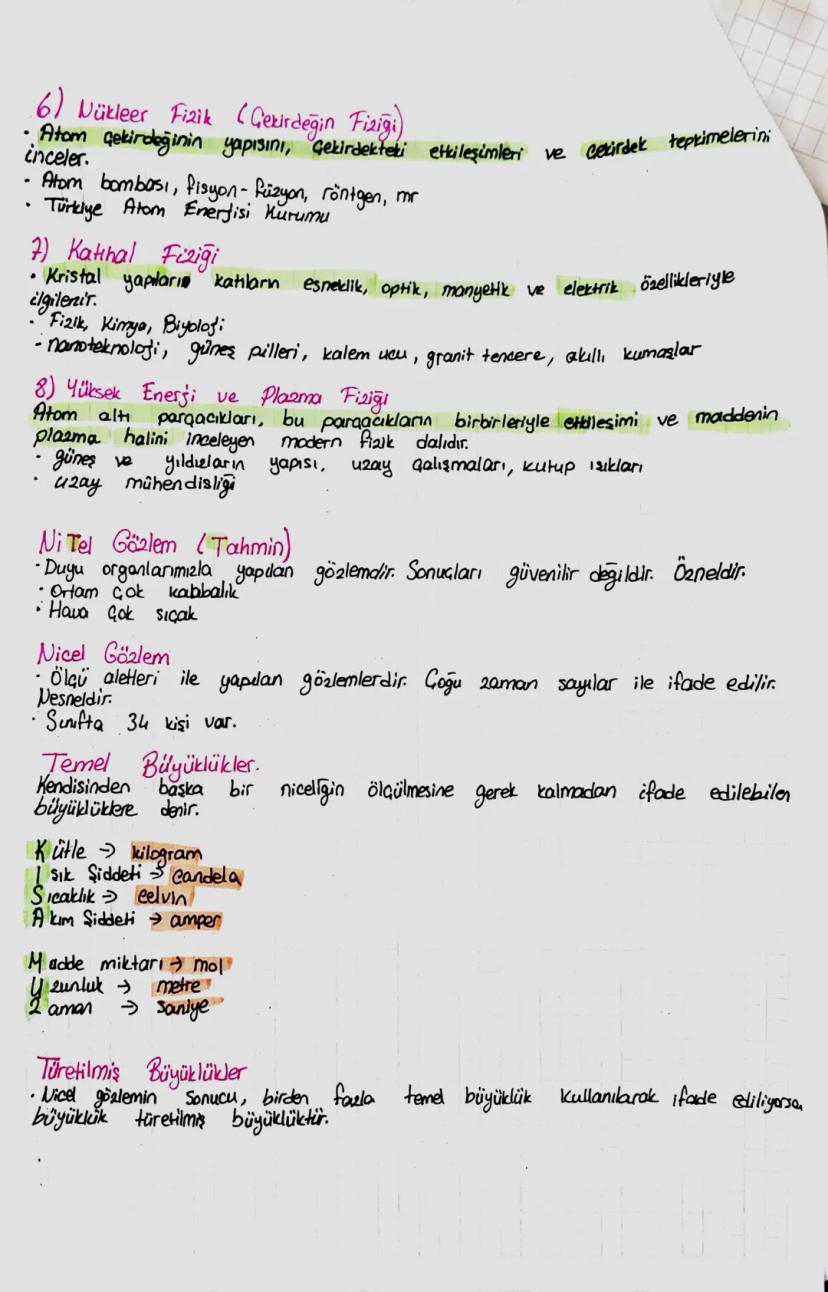 6) Nükleer Fizik (Çekirdeğin Fiziği)
• Atom çekirdeğinin yapısını, Çekirdekteki etkileşimleri ve çekirdek tepkimelerini
inceler.
• Atom bombası, fisyon-füzyon, röntgen, mr
• Türkiye Atom Enerjisi Kurumu
7) Katıhal Fiziği
• Kristal yapıların katıların esneklik, optik, manyetik ve elektrik özellikleriyle
ilgilenir.
• Fizik, Kimya, Biyoloji
• nanoteknoloji, güneş pilleri, kalem ucu, granit tencere, akıllı kumaşlar
8) Yüksek Enerji ve Plazma Fiziği
Atom altı parçacıkları, bu parçacıkların birbirleriyle etkileşimi ve maddenin
plazma halini inceleyen modern fizik dalıdır.
• güneş ve yıldızların yapısı, uzay çalışmaları, kutup ışıkları
• uzay mühendisliği
NiTel Gözlem (Tahmin)
• Duyu organlarımızla yapılan gözlemdir. Sonuçları güvenilir değildir. Özneldir.
• Ortam çok kabbalık
• Hava çok sıcak
Nicel Gözlem
• Ölçü aletleri ile yapılan gözlemlerdir. Çoğu zaman sayılar ile ifade edilir.
Nesneldir.
• Sınıfta 34 kişi var.
Temel Büyüklükler.
Kendisinden başka bir niceliğin ölçülmesine gerek kalmadan ifade edilebilen
büyüklüklere denir.
Kütle → kilogram
Işık Şiddeti → candela
Sıcaklık → celvin
Akım Şiddeti → amper
Madde miktarı → mol
Uzunluk → metre
Zaman → saniye
Türetilmiş Büyüklükler
• Nicel gözlemin sonucu, birden fazla temel büyüklük kullanılarak ifade ediliyorsa,
büyüklük türetilmiş büyüklüktür.
•